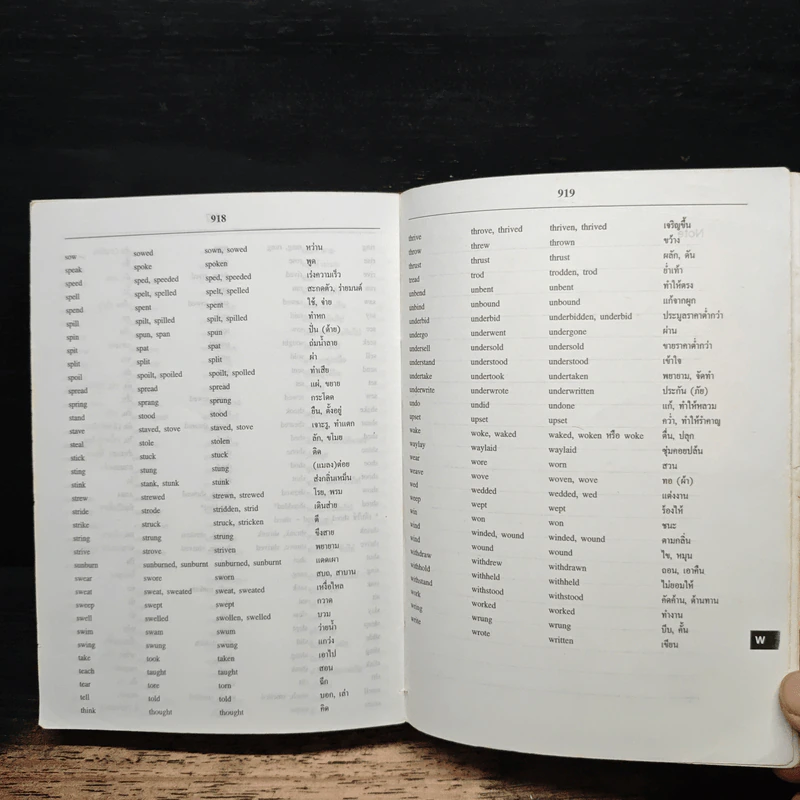 918
sow sowed sown, sowed หว่าน
speak spoke spoken พูด
speed sped, speeded sped, speeded เร่งความเร็ว
spell spelt, spelled spelt, spelled สะกดตัว, ร่ายมนต์
spend spent spent ใช้, จ่าย
spill spilt, spilled spilt, spilled ทำหก
spin spun, span spun ปั่น (ด้าย)
spit spat spat ถ่มน้ำลาย
split split split ผ่า
spoil spoilt, spoiled spoilt, spoiled ทำเสีย
spread spread spread แผ่, ขยาย
spring sprang sprung กระโดด
stand stood stood ยืน, ตั้งอยู่
stave staved, stove staved, stove เจาะรู, ทำแตก
steal stole stolen ลัก, ขโมย
stick stuck stuck ติด
sting stung stung (แมลง)ต่อย
stink stank, stunk stunk ส่งกลิ่นเหม็น
strew strewed strewn, strewed โรย, พรม
stride strode stridden, strid เดินส่าย
strike struck struck, stricken ตี
string strung strung ขึงสาย
strive strove striven พยายาม
sunburn sunburned, sunburnt sunburned, sunburnt แดดเผา
swear swore sworn สบถ, สาบาน
sweat sweat, sweated sweat, sweated เหงื่อไหล
sweep swept swept กวาด
swell swelled swollen, swelled บวม
swim swam swum ว่ายน้ำ
swing swung swung แกว่ง
take took taken เอาไป
teach taught taught สอน
tear tore torn ฉีก
tell told told บอก, เล่า
think thought thought คิด
919
thrive throve, thrived thriven, thrived เจริญขึ้น
throw threw thrown ขว้าง
thrust thrust thrust ผลัก, ดัน
tread trod trodden, trod ย่ำเท้า
unbend unbent unbent ทำให้ตรง
unbind unbound unbound แก้จากผูก
underbid underbid underbidden, underbid ประมูลราคาต่ำกว่า
undergo underwent undergone ผ่าน
undersell undersold undersold ขายราคาต่ำกว่า
understand understood understood เข้าใจ
undertake undertook undertaken พยายาม, จัดทำ
underwrite underwrote underwritten ประกัน (ภัย)
undo undid undone แก้, ทำให้หลวม
upset upset upset คว่ำ, ทำให้รำคาญ
wake woke, waked waked, woken หรือ woke ตื่น, ปลุก
waylay waylaid waylaid ซุ่มคอยปล้น
wear wore worn สวม
weave wove woven, wove ทอ (ผ้า)
wed wedded wedded, wed แต่งงาน
weep wept wept ร้องไห้
win won won ชนะ
wind winded, wound winded, wound ตามกลิ่น
wind wound wound ไข, หมุน
withdraw withdrew withdrawn ถอน, เอาคืน
withhold withheld withheld ไม่ยอมให้
withstand withstood withstood คัดค้าน, ต้านทาน
work worked worked ทำงาน
wring wrung wrung บีบ, คั้น
write wrote written เขียน
W